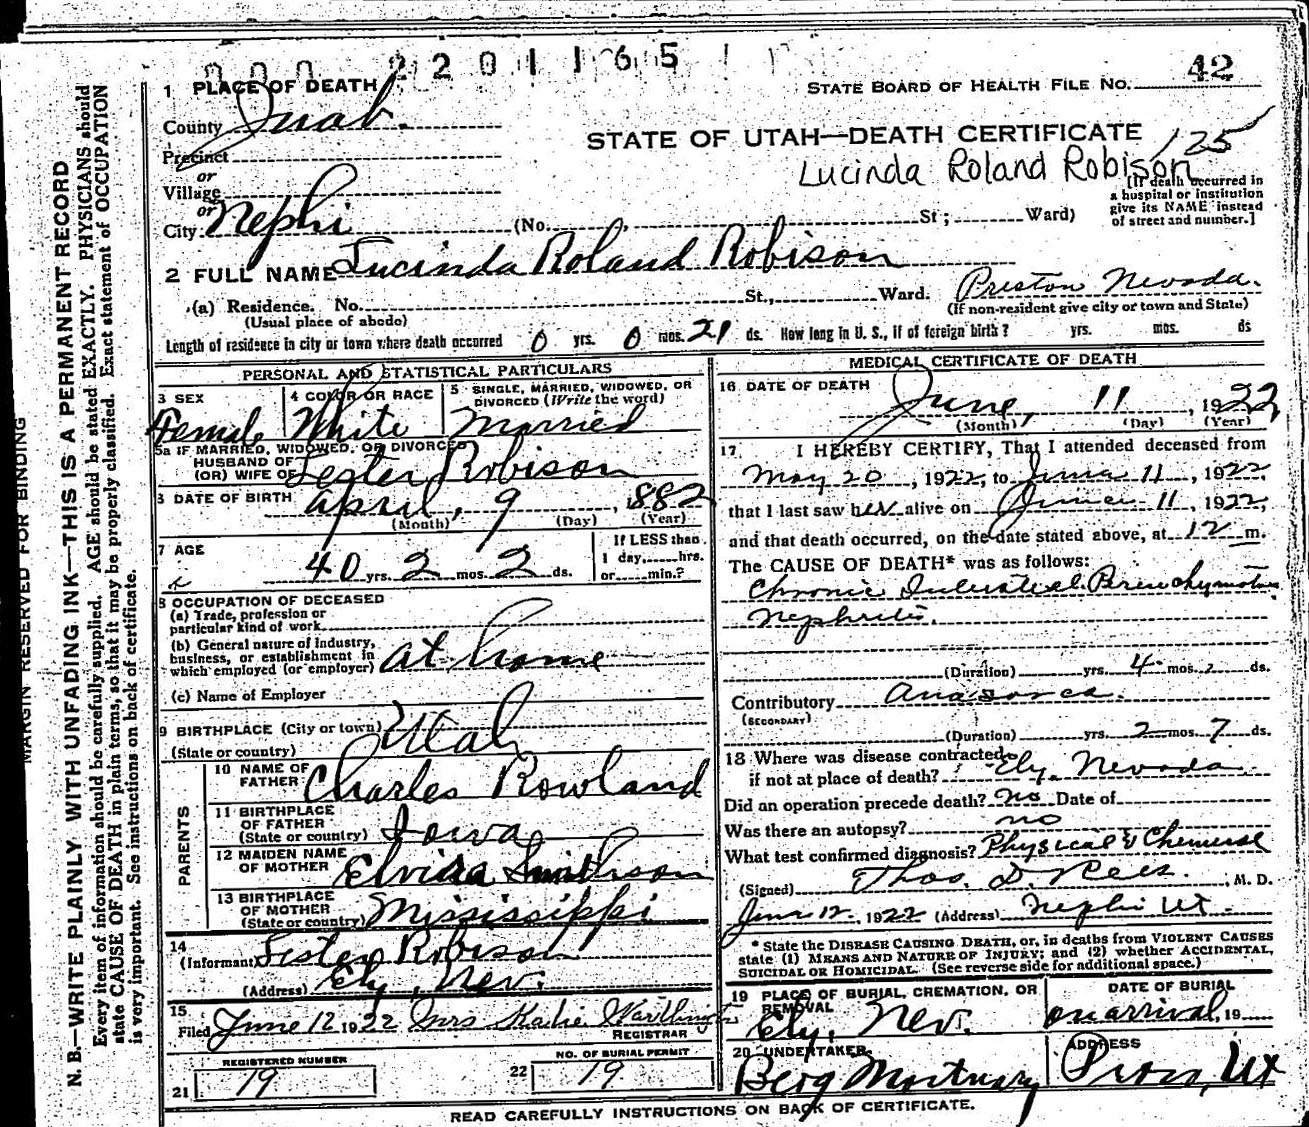 000 2201165
1 PLACE OF DEATH
STATE BOARD OF HEALTH FILE No. 42
County Juab.
STATE OF UTAH—DEATH CERTIFICATE
125
Precinct
Lucinda Roland Robison
or
Village
or
City Nephi (No. St; Ward)
[If death occurred in
a huspital or institution
give its NAME instead
of street and number.]
2 FULL NAME Lucinda Roland Robison
(a) Residence. No. St., Ward. Preston Nevada.
(Usual place of abode)
(If non-resident give city or town and State)
Length of residence in city or town where death occurred 0 yrs. 0 mos. 21 ds. How long in U. S., if of foreign birth? yrs. mos. ds
PERSONAL AND STATISTICAL PARTICULARS
3 SEX
Female
4 COLOR OR RACE
White
5 SINGLE, MARRIED, WIDOWED, OR
DIVORCED (Write the word)
Married
5a IF MARRIED, WIDOWED, OR DIVORCED
HUSBAND OF
(OR) WIFE OF Lester Robison
6 DATE OF BIRTH April, 9, 1882
(Month) (Day) (Year)
7 AGE
40 yrs. 2 mos. 2 ds.
If LESS than
1 day, hrs.
or min.?
8 OCCUPATION OF DECEASED
(a) Trade, profession or
particular kind of work
(b) General nature of Industry,
business, or establishment in
which employed (or employer) at home
(c) Name of Employer
9 BIRTHPLACE (City or town)
(State or country) Utah
PARENTS
10 NAME OF
FATHER Charles Rowland
11 BIRTHPLACE
OF FATHER
(State or country) Iowa
12 MAIDEN NAME
OF MOTHER Elvira Smithson
13 BIRTHPLACE
OF MOTHER
(State or country) Mississippi
14
(Informant) Lester Robison
(Address) Ely, Nev.
15
Filed June 12 1922 Mrs Katie
REGISTRAR
REGISTERED NUMBER
21 19
NO. OF BURIAL PERMIT
22 19.
MEDICAL CERTIFICATE OF DEATH
16 DATE OF DEATH
June, 11, 1922
(Month) (Day) (Year)
17 I HEREBY CERTIFY, That I attended deceased from
May 20, 1922, to June 11, 1922,
that I last saw her alive on June 11, 1922,
and that death occurred, on the date stated above, at 12 m.
The CAUSE OF DEATH* was as follows:
Chronic
Nephritis.
(Duration) yrs. 4 mos. ds.
Contributory Anasarca.
(SECONDARY)
(Duration) yrs. 2 mos. 7 ds.
18 Where was disease contracted
if not at place of death? Ely, Nevada
Did an operation precede death? no Date of
Was there an autopsy? no
What test confirmed diagnosis? Physical & Chemical
(Signed) Thos. D. Rees, M. D.
June 12, 1922 (Address) Nephi Ut.
* State the DISEASE CAUSING DEATH, or, in deaths from VIOLENT CAUSES
state (1) MEANS AND NATURE OF INJURY; and (2) whether ACCIDENTAL,
SUICIDAL OR HOMICIDAL. (See reverse side for additional space.)
19 PLACE OF BURIAL, CREMATION, OR
REMOVAL
Ely, Nev.
DATE OF BURIAL
on arrival, 19
20 UNDERTAKER
Berg Mortuary
ADDRESS
Provo, Ut
READ CAREFULLY INSTRUCTIONS ON BACK OF CERTIFICATE.
MARGIN RESERVED FOR BINDING
N. B.—WRITE PLAINLY, WITH UNFADING INK—THIS IS A PERMANENT RECORD
Every item of information should be carefully supplied. AGE should be stated EXACTLY. PHYSICIANS should
state CAUSE OF DEATH in plain terms, so that it may be properly classified. Exact statement of OCCUPATION
is very important. See instructions on back of certificate.